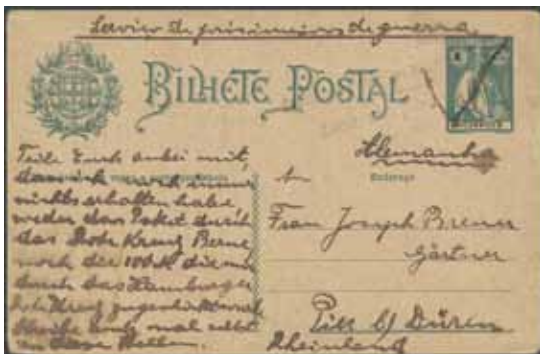 Servico de prisioneiros de guerra
BILHETE POSTAL
Alemanha
Teile Euch anbei mit,
dass ich noch immer
nichts erhalten habe
weder das Paket durch
das Rote Kreuz Berne
noch die 100 M die mir
durch das Hamburger
Rote Kreuz
Schreibt mal selbst
an diese Stellen.
An
Endereço
Frau Joseph Brener
Gärtner
b/ Düren
Rheinland